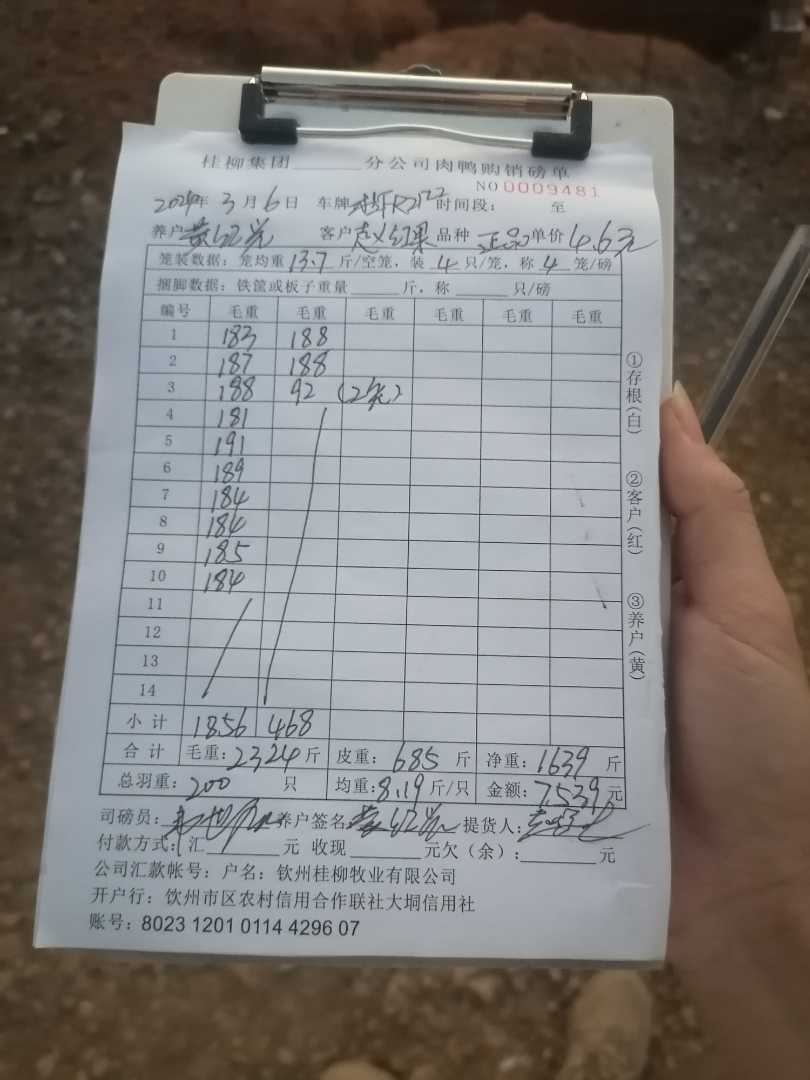 桂柳集团______分公司肉鸭购销磅单
NO 0009481
2024年 3月 6日 车牌 时间段： 至
养户 黄 客户 赵红果 品种 正品 单价 4.6元
笼装数据：笼均重 13.7 斤/空笼，装 4 只/笼，称 4 笼/磅
捆脚数据：铁筐或板子重量______斤，称______只/磅
编号 毛重 毛重 毛重 毛重 毛重 毛重
1 183 188
2 187 188
3 188 92 (2笼)
4 181
5 191
6 189
7 184
8 184
9 185
10 184
11
12
13
14
小计 1856 468
合计 毛重：2324斤 皮重：685斤 净重：1639斤
总羽重：200 只 均重：8.19斤/只 金额：7539元
司磅员： 养户签名 提货人：
付款方式：汇______元 收现______元欠（余）：______元
公司汇款帐号：户名：钦州桂柳牧业有限公司
开户行：钦州市区农村信用合作联社大垌信用社
账号：8023 1201 0114 4296 07
①存根(白)
②客户(红)
③养户(黄)